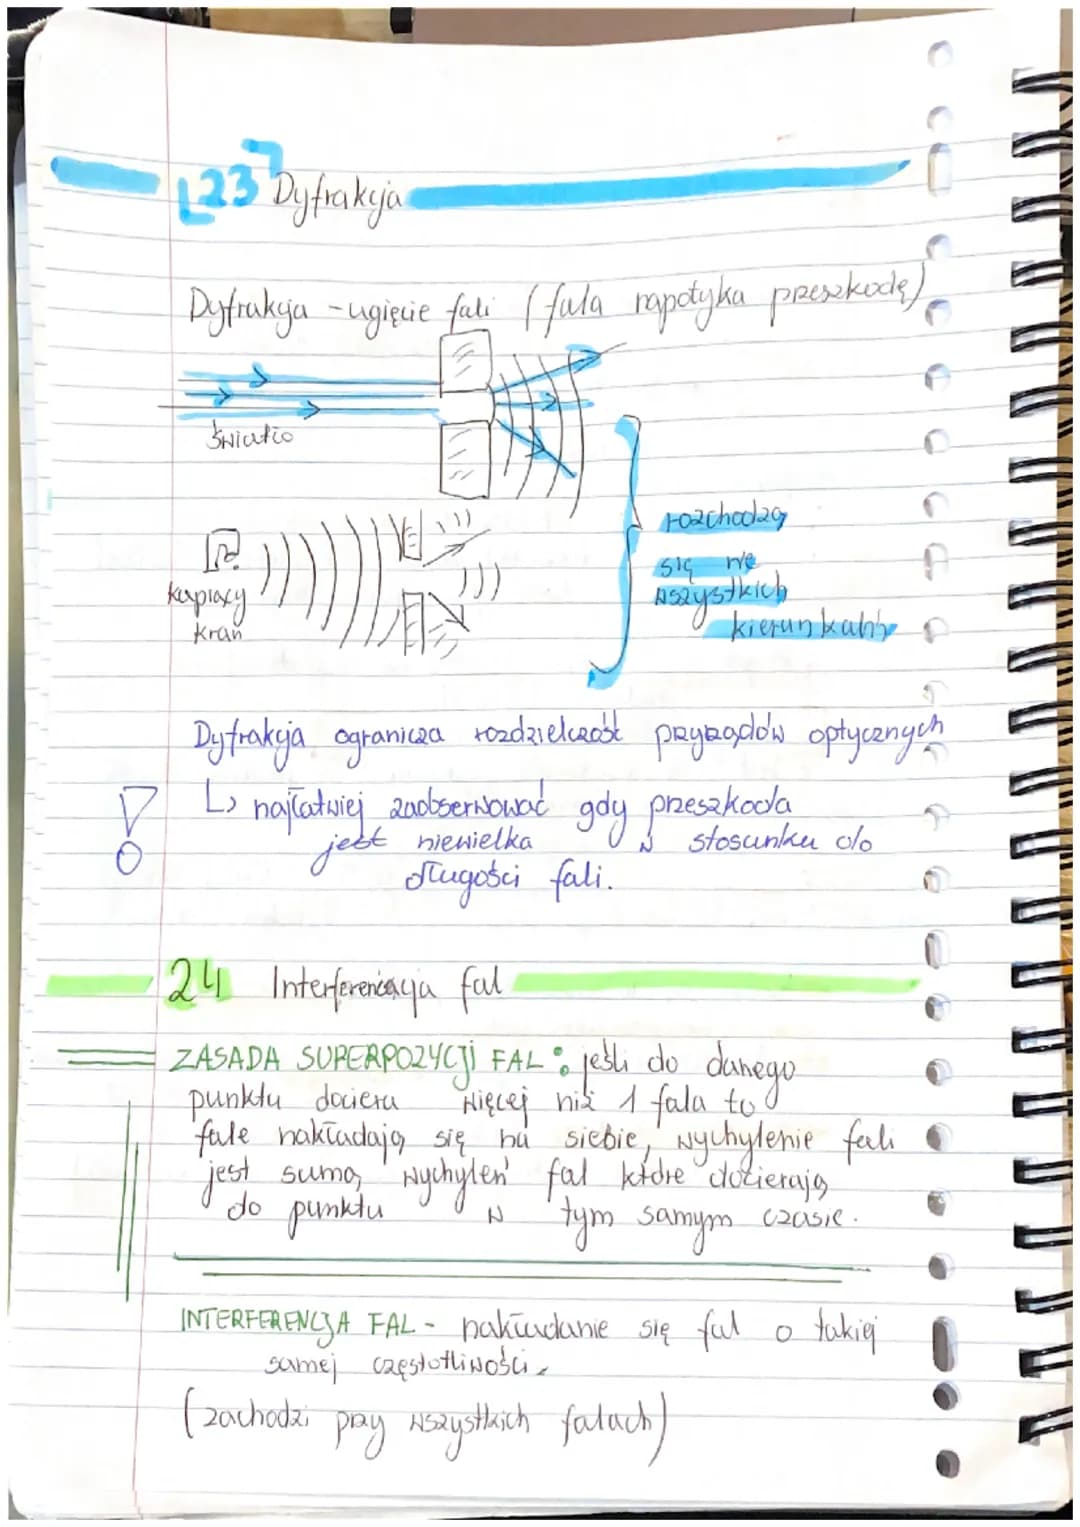 L23 Dyfrakcja
Dyfrakcja - ugięcie fali (fala napotyka przeszkodę)
światło
kapiący
kran
rozchodzą
się we
wszystkich
kierunkach
Dyfrakcja ogranicza rozdzielczość przyrządów optycznych
↳ najłatwiej zaobserwować gdy przeszkoda
jest niewielka w stosunku do
długości fali.
24 Interferencja fal
ZASADA SUPERPOZYCJI FAL: jeśli do danego
punktu dociera więcej niż 1 fala to
fale nakładają się na siebie, wychylenie fali
jest sumą wychyleń fal które docierają
do punktu w tym samym czasie.
INTERFERENCJA FAL - nakładanie się fal o takiej
samej częstotliwości.
(zachodzi przy wszystkich falach)